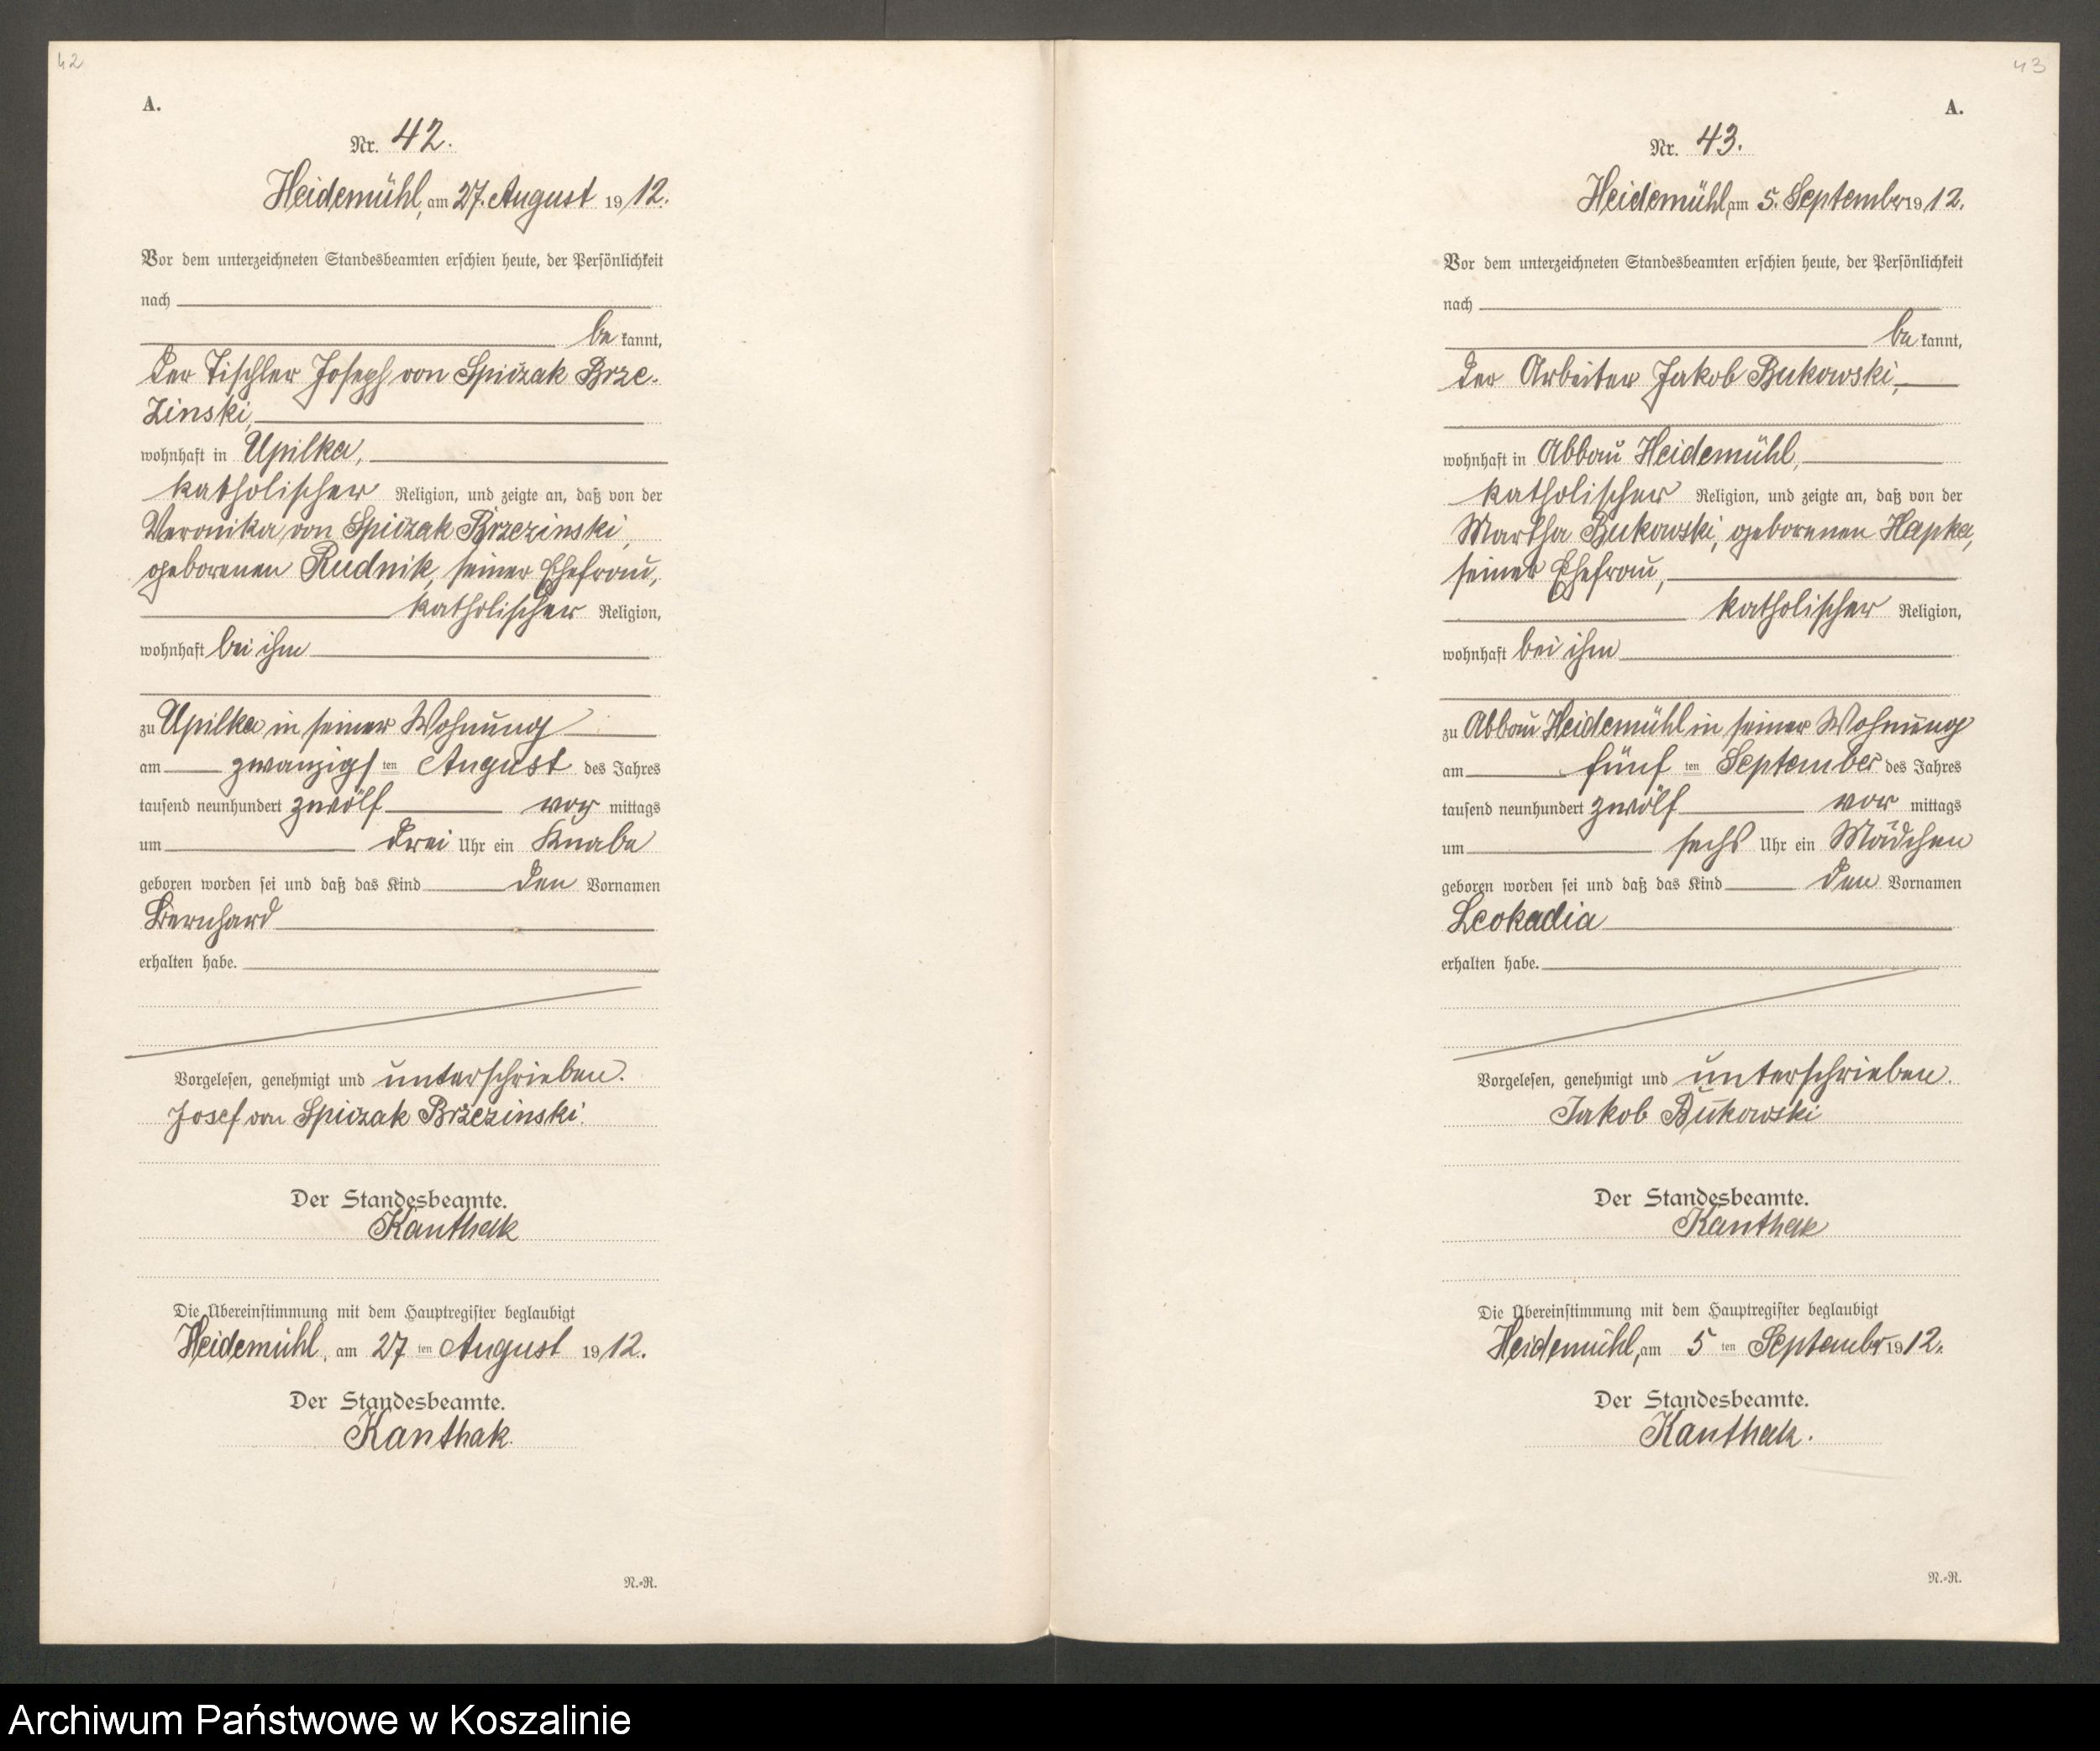 42
A.
Nr. 42.
Heidemühl, am 27. August 1912.
Vor dem unterzeichneten Standesbeamten erschien heute, der Persönlichkeit
nach
be kannt,
der Tischler Joseph von Spiczak Brze-
zinski,
wohnhaft in Upilka,
katholischer Religion, und zeigte an, daß von der
Veronika von Spiczak Brzezinski,
geborenen Rudnik, seiner Ehefrau,
katholischer Religion,
wohnhaft bei ihm
zu Upilka in seiner Wohnung
am zwanzigsten August des Jahres
tausend neunhundert zwölf vor mittags
um drei Uhr ein Knabe
geboren worden sei und daß das Kind den Vornamen
Bernhard
erhalten habe.
Vorgelesen, genehmigt und unterschrieben.
Josef von Spiczak Brzezinski.
Der Standesbeamte.
Kanthak
Die Übereinstimmung mit dem Hauptregister beglaubigt
Heidemühl, am 27 ten August 1912.
Der Standesbeamte.
Kanthak.
N.-R.
43
A.
Nr. 43.
Heidemühl, am 5. September 1912.
Vor dem unterzeichneten Standesbeamten erschien heute, der Persönlichkeit
nach
be kannt,
der Arbeiter Jakob Bukowski,
wohnhaft in Abbau Heidemühl,
katholischer Religion, und zeigte an, daß von der
Martha Bukowski, geborenen Hapka,
seiner Ehefrau,
katholischer Religion,
wohnhaft bei ihm
zu Abbau Heidemühl in seiner Wohnung
am fünf ten September des Jahres
tausend neunhundert zwölf vor mittags
um sechs Uhr ein Mädchen
geboren worden sei und daß das Kind den Vornamen
Leokadia
erhalten habe.
Vorgelesen, genehmigt und unterschrieben.
Jakob Bukowski
Der Standesbeamte.
Kanthak
Die Übereinstimmung mit dem Hauptregister beglaubigt
Heidemühl, am 5 ten Septembr 1912.
Der Standesbeamte.
Kanthak.
N.-R.
Archiwum Państwowe w Koszalinie